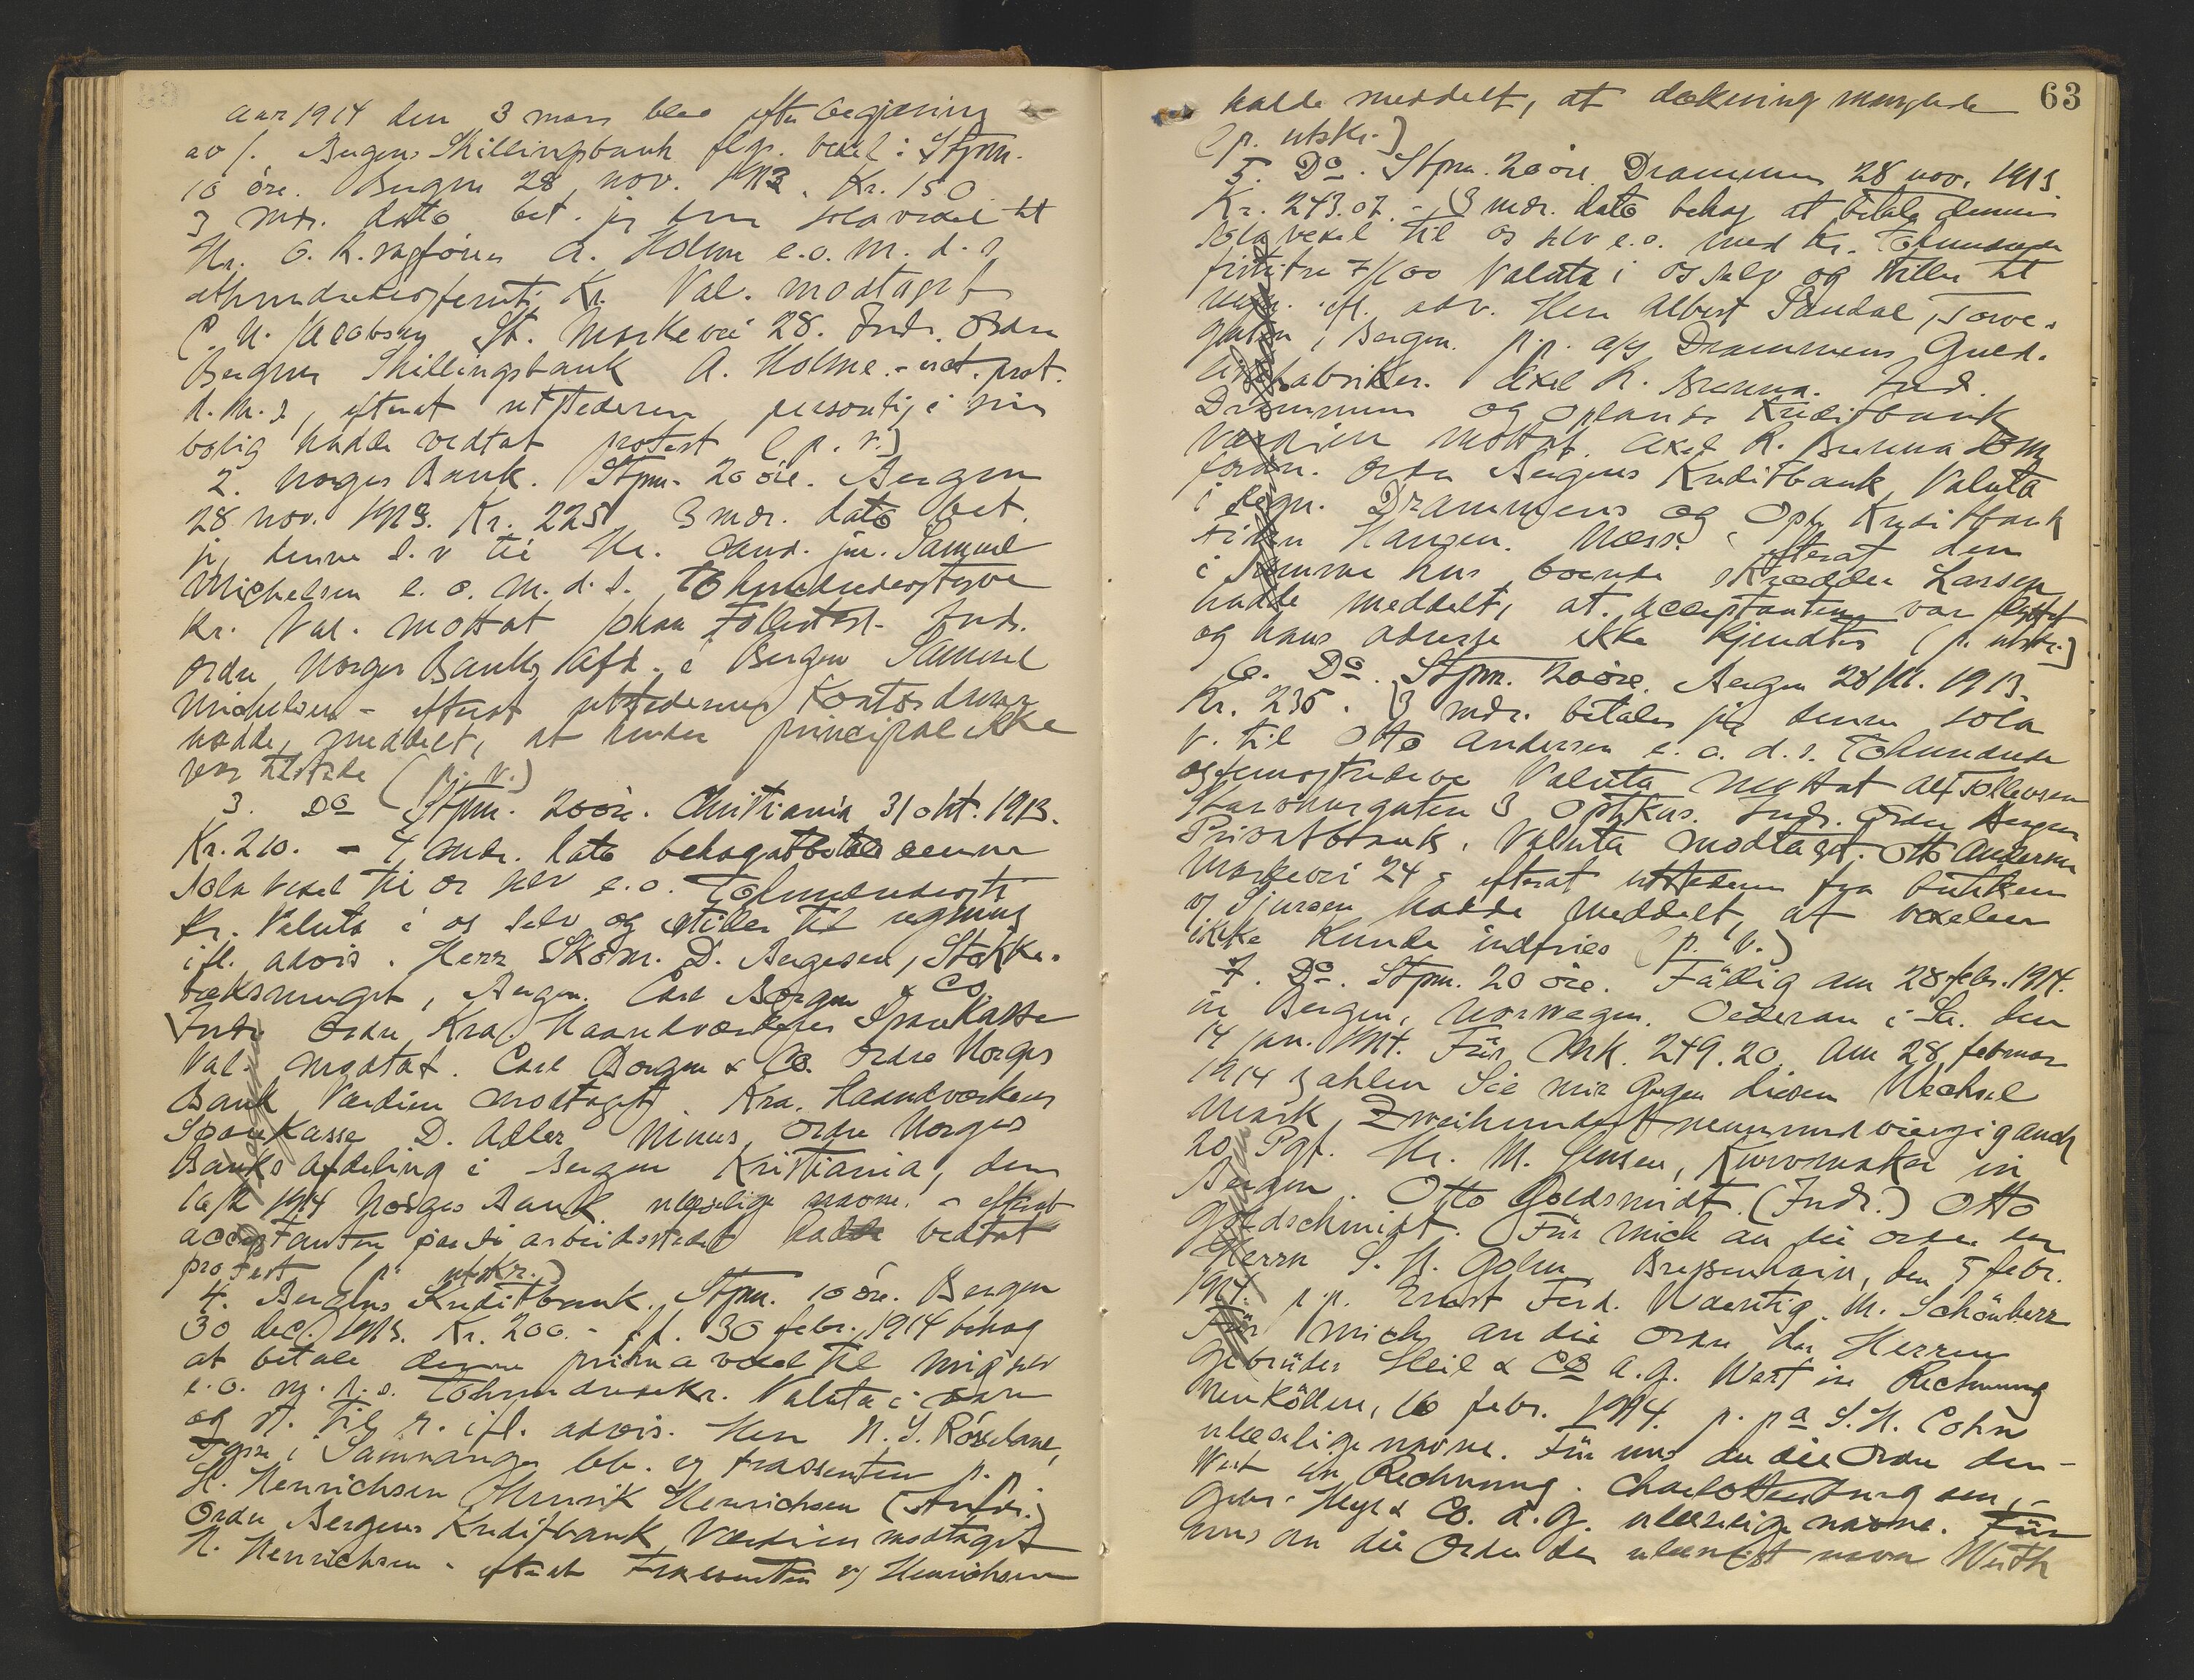 Aar 1914 den 3 mars blev efter begjæring
av 1. Bergens Skillingsbank flg. vexel: Stpm.
10 öre. Bergen 28 nov. 1913. Kr. 150
3 mdr. dato bet. jeg denne solavexel til
Hr. O. R. sagförer A. Holme e.o. m. d. s.
ethundredeogfemti Kr. Val. modtaget
C. N. Jacobsen St. Markevei 28. Inds. Ordre
Bergens Skillingsbank A. Holme. - not. prot.
n. m. s, efterat utstederen personlig i sin
bolig hadde vedtat protest (p. v.)
2. Norges Bank. Stpm. 20 öre. Bergen
28 nov. 1913. Kr. 225 3 mdr. dato bet.
jeg denne s. v til Hr. Cand. jur. Samuel
Michelsen e. o. m. d. s. tohundredeogtyve
Kr. Val. mottat Johan Follestad. Inds.
Ordre Norges Banks Afd. i Bergen Samuel
Michelsen - efterat utstederens Kontordame
hadde meddelt, at hendes principal ikke
var tilstede (p. v.)
3. Do Stpm. 20 öre. Christiania 31 okt. 1913.
Kr. 210. - 4 mdr. dato behag at betale denne
Sola vexel til os selv e.o. Tohundredeogti
Kr. Valuta i os selv og stilles til regning
ifl. advis. Herr Skom. D. Bergesen, Stokke-
bæksmuget, Bergen. Carl Borgen & Co
Inds. Ordre Kra. Haandværkeres Sparekasse
Val. modtat. Carl Borgen & Co. Ordre Norges
Bank Værdien modtaget. Kra. Haandværkeres
Sparekasse D. Adler Ordre Norges
Banks Afdeling i Bergen Kristiania, den
16/2 1914 Norges Bank ulæselige navne. - efterat
acceptanten paa sit arbeidssted hadde vedtat
protest (p. utskr.)
4. Bergens Kreditbank. Stpm. 10 öre. Bergen
30 dec. 1913. Kr. 200. - p.f. 30 febr. 1914 behag
at betale denne prima vexel til mig selv
e.o. m. d. s. Tohundredekr. Valuta i vare
og st. til r. ifl. advis. Herr N. S. Röseland,
Tysse i Samnanger bb. og trassenten p. p
H. Henrichsen Henrik Henrichsen (Inds.)
Ordre Bergens Kreditbank Værdien modtaget
H. Henrichsen - efterat trassenten v/ Henrichsen
63
hadde meddelt, at dækning manglede
(p. utskr.)
5. Do. Stpm. 20 öre. Drammen 28 nov. 1913.
Kr. 243.07. - 3 mdr. dato behag at betale denne
Solavexel til os selv e.o. med Kr. Tohundrede
firtitre 7/100 Valuta i os selv og stilles til
regn. ifl. adv. Herr Albert Sandal, Torve-
gaten, Bergen. p.p. a/s Drammens Guld-
listefabriker. Axel R. Brenna. Inds.
Drammens og Oplands Kreditbank
Værdien mottat. Axel R. Brenna som
foran. Ordre Bergens Kreditbank Valuta
i regn. Drammens og Opl. Kreditbank
Hansen. Næss. efterat den
i samme hus boende skrædder Larsen
hadde meddelt, at acceptanten var flyttet
og hans adresse ikke kjendtes (p. utskr.)
6. Do. Stpm. 20 öre. Bergen 28/11. 1913.
Kr. 235. 3 mdr. betaler jeg denne sola
v. til Otto Andersen e. o. d. s. Tohundrede
ogfemogtredive Valuta mottat Alf Tollevsen
3 Optikus. Inds. Ordre Bergens
Privatbank. Valuta modtaget. Otto Andersen
Markevei 24 - efterat utstederen fra butikken
v/ Sjursen hadde meddelt, at vexelen
ikke kunde indfries (p. v.)
7. Do. Stpm. 20 öre. Fällig am 28 febr. 1914.
in Bergen, Norwegen. Oederan i Sa. den
14 jan. 1914. Für Mk. 249.20. Am 28 februar
1914 zahlen Sie mir gegen diesen Wechsel
Mark Zweihundert neunundvierzig auch
20 Pgf. Hr. M. Jensen, Kurvmaker in
Bergen. Otto Goldsmidt. (Inds.) Otto
Goldschmidt. Für mich an die order des
Herrn S. H. Cohn Breßenhain, den 5 febr.
1914. p.p. Ernst Ferd. Waentig. M. Schönherr
Für mich an die Ordre der Herren
Gebrüder Heil & Co A.G. Wert in Rechnung
Neukölln, 16 febr. 1914. p. pa S. H. Cohn
ulæselige navne. Für uns an die Ordre der -
Wert in Rechnung. Charlottenburg den, -
Gebr. Heyl & Co. A.G. ulæselige navne. Für
uns an die Ordre der ulæseligt navn Werth